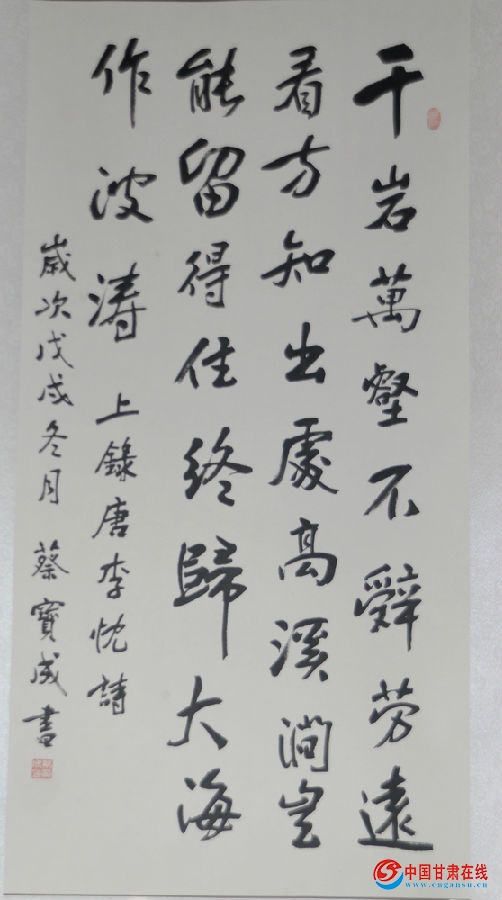 千岩萬壑不辤劳遠
看方知出處高溪澗豈
能留得住終歸大海
作波濤 上錄唐李忱詩
嵗次戊戌冬月 蔡寶成書
中国甘肃在线
www.cngansu.cn